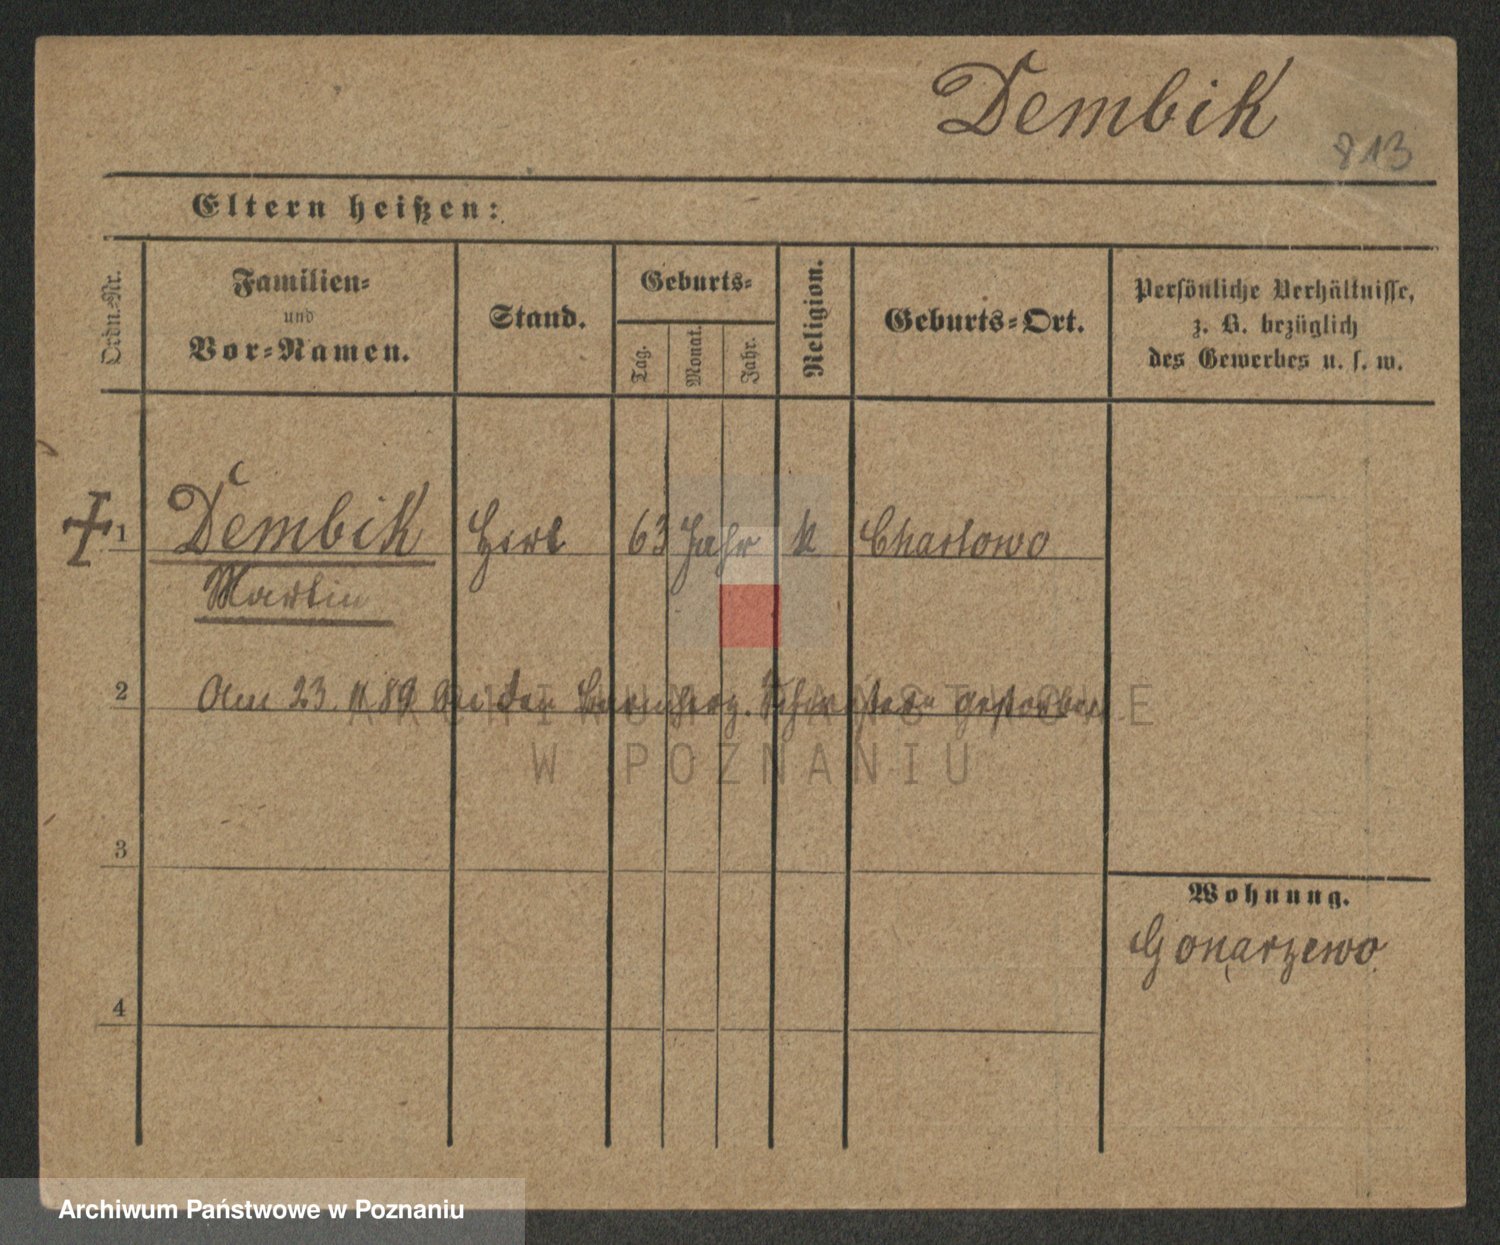 Dembik
813
Eltern heißen:
Ordn.-Nr.
Familien-
und
Vor-Namen.
Stand.
Geburts-
Tag.
Monat.
Jahr.
Religion.
Geburts-Ort.
Persönliche Verhältnisse,
z. B. bezüglich
des Gewerbes u. s. w.
1 Dembik Hirt 63 Jahr k Chartowo
Martin
2 Am 23. 11 89 bei den Barmherz. Schwestern gestorben
ARCHIWUM PAŃSTWOWE
W POZNANIU
3
Wohnung.
Gonarzewo
4
Archiwum Państwowe w Poznaniu